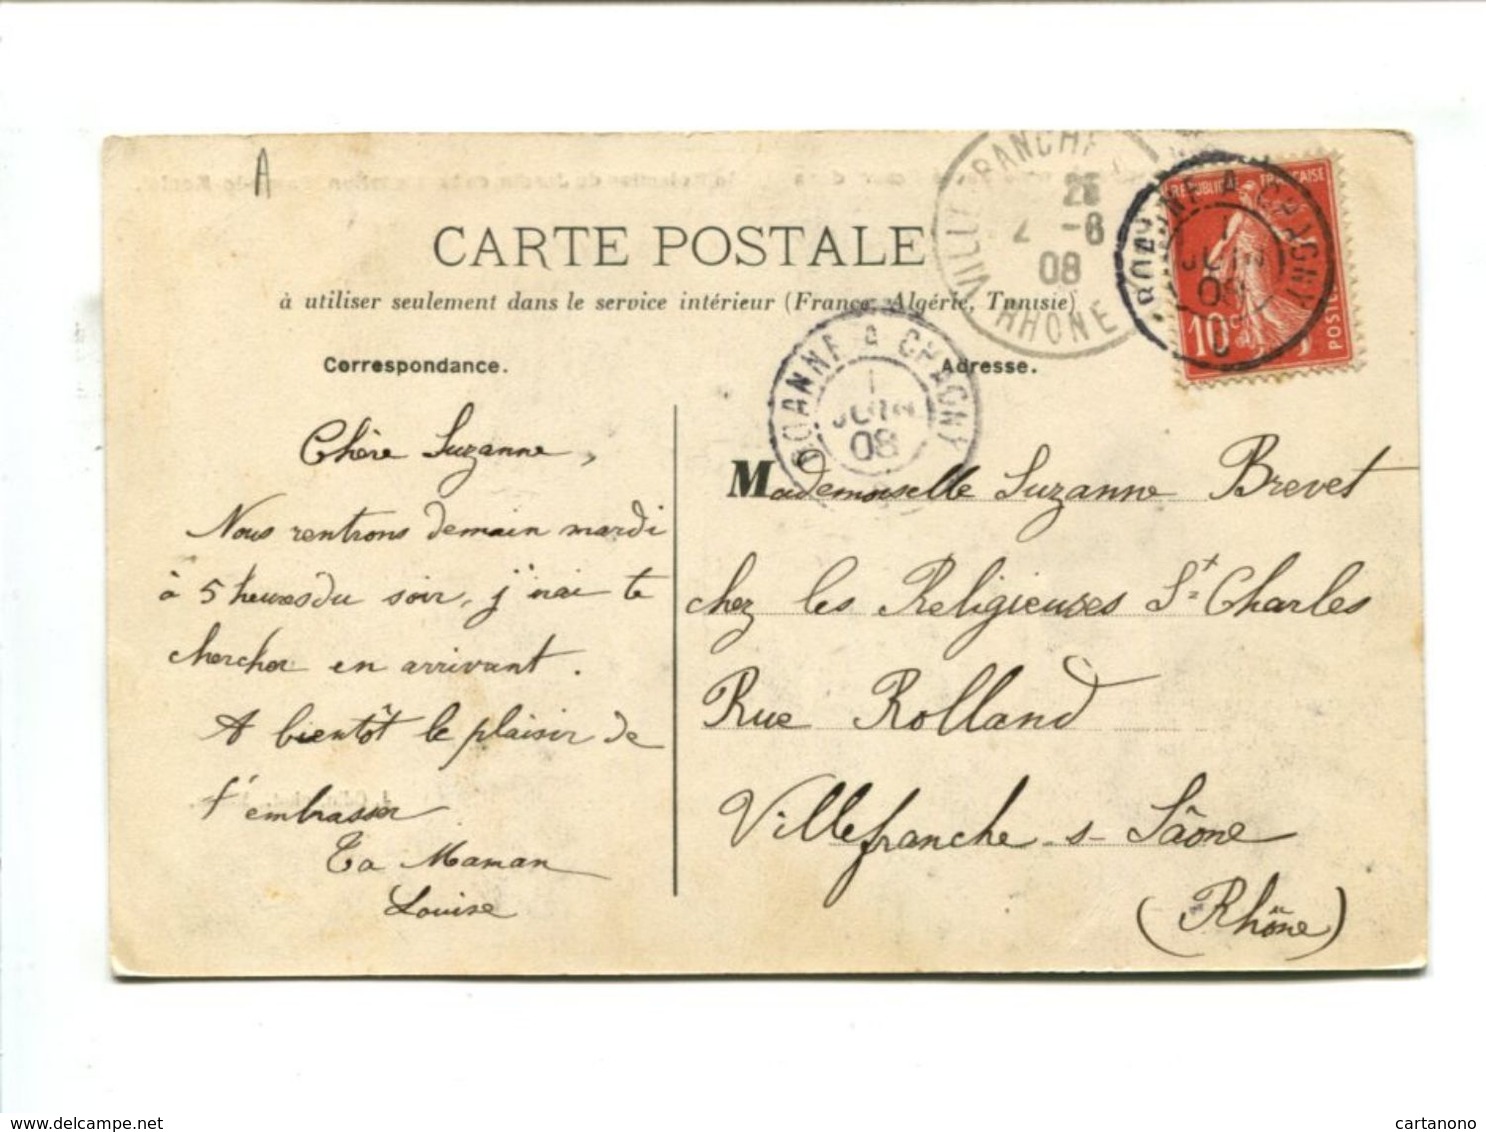 A
CARTE POSTALE
à utiliser seulement dans le service intérieur (France, Algérie, Tunisie)
Correspondance.
Chère Suzanne,
Nous rentrons demain mardi
à 5 heures du soir, j'irai te
chercher en arrivant.
A bientôt le plaisir de
t'embrasser
Ta Maman
Louise
VILLEFRANCHE
25
2 -6
08
RHONE
ROANNE A CHAGNY
1
JUIN
08
ROANNE A CHAGNY
1
JUIN
08
REPUBLIQUE FRANÇAISE
10c
POSTES
Adresse.
Mademoiselle Suzanne Brevet
chez les Religieuses St Charles
Rue Rolland
Villefranche s- Saône
(Rhône)
www.delcampe.net
cartanono